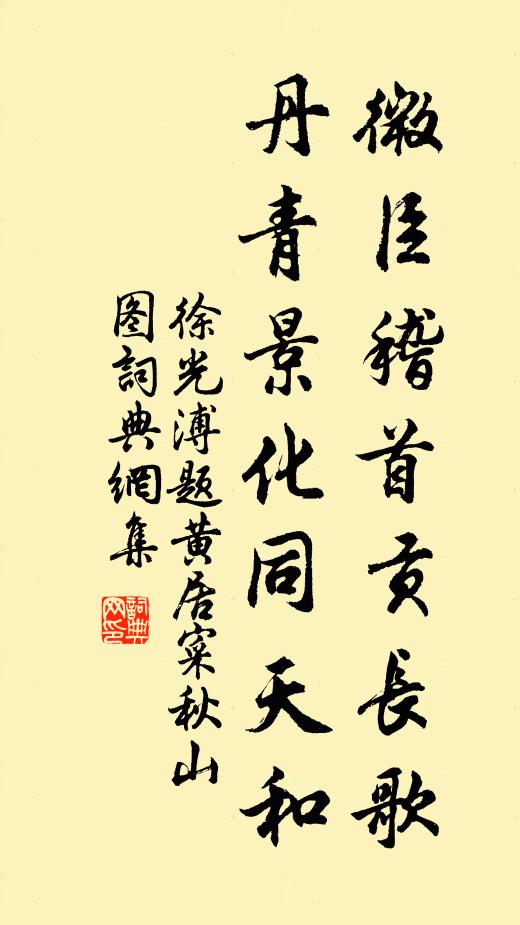 微臣稽首貢長歌
丹青景化同天和
徐光溥题黄居寀秋山
图詞典網集
詞典
网印